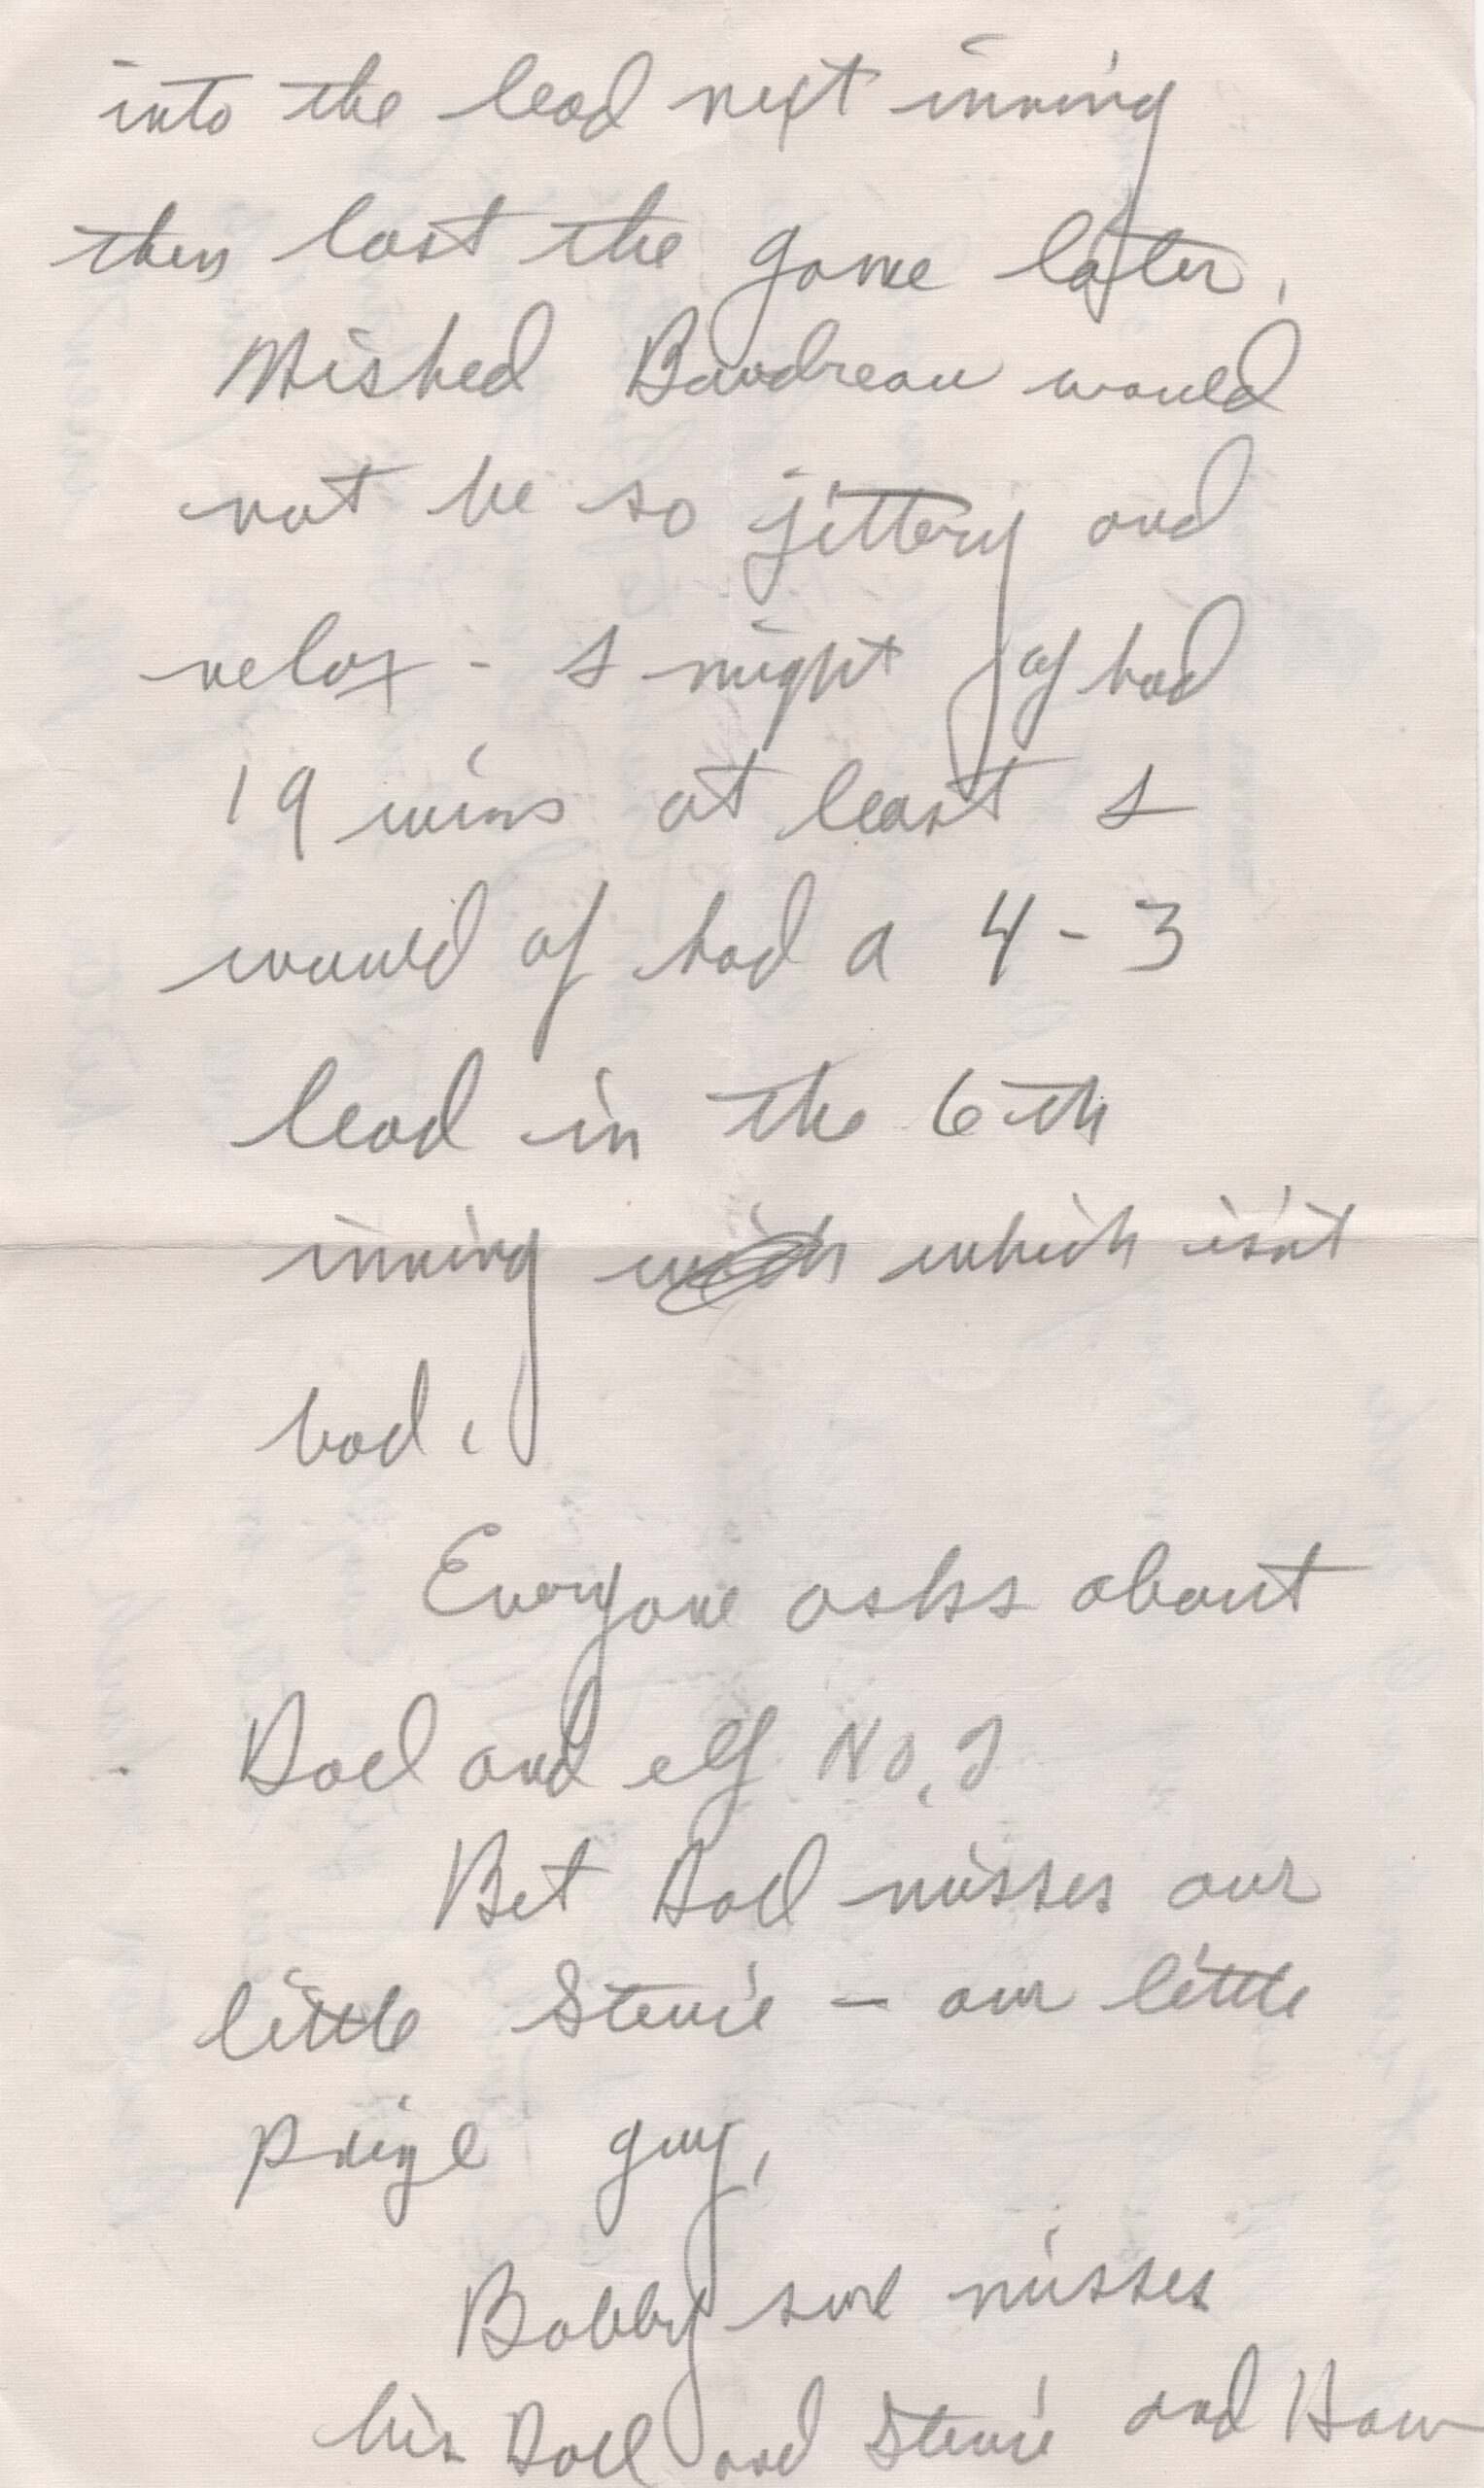 into the lead next inning
then lost the game later.
Wished Boudreau would
not be so jittery and
relax - I might of had
19 wins at least I
would of had a 4-3
lead in the 6th
inning which isn't
bad.
Everyone asks about
Doll and elf No. 2
Bet Doll misses our
little Stevie - our little
prize guy.
Bobby sure misses
his Doll and Stevie and How